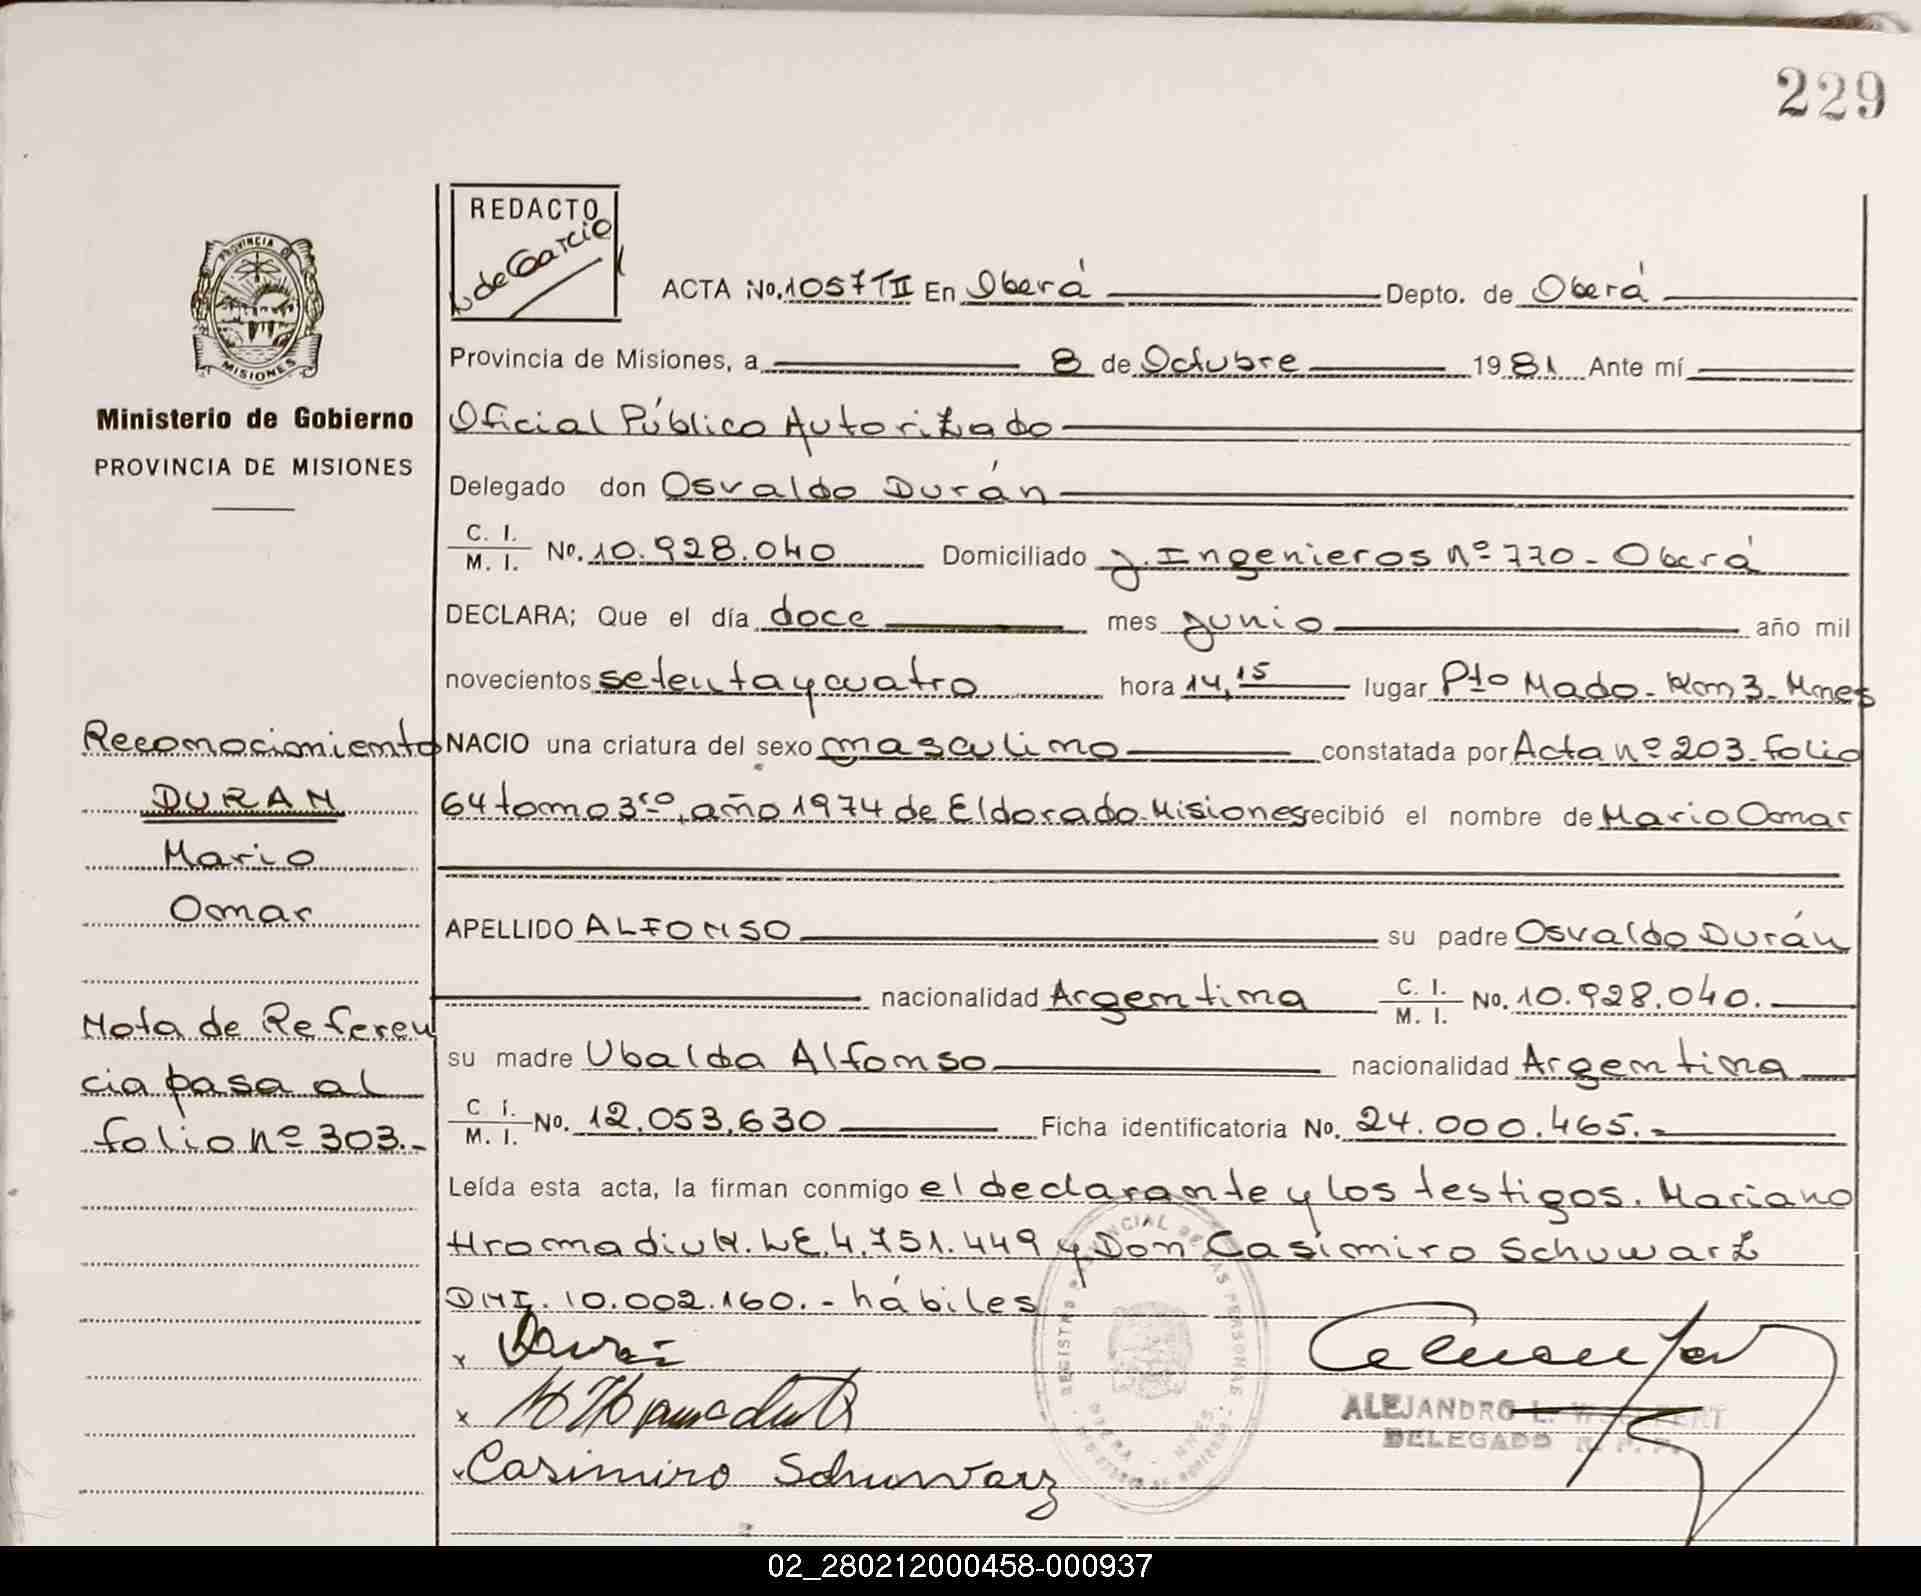 229
REDACTO
L. de Garcia
ACTA No. 1057 TII En Oberá Depto. de Oberá
PROVINCIA
MISIONES
Provincia de Misiones, a 8 de Octubre 1981 Ante mí
Ministerio de Gobierno
PROVINCIA DE MISIONES
Oficial Público Autorizado
Delegado don Osvaldo Durán
C. I. / M. I. No. 10.928.040 Domiciliado J. Ingenieros nº 770 - Oberá
DECLARA; Que el día doce mes junio año mil
novecientos setenta y cuatro hora 14,15 lugar Pto Mado - Km 3 - Mnes
Reconocimiento
DURAN
Mario
Omar
NACIO una criatura del sexo masculino constatada por Acta nº 203 - folio
64 tomo 3ro, año 1974 de Eldorado - Misiones recibió el nombre de Mario Omar
APELLIDO ALFONSO su padre Osvaldo Durán
nacionalidad Argentina C. I. / M. I. No. 10.928.040.
Nota de Referen
cia pasa al
folio nº 303.-
su madre Ubalda Alfonso nacionalidad Argentina
C. I. / M. I. No. 12.053.630 Ficha identificatoria No. 24.000.465.-
Leída esta acta, la firman conmigo el declarante y los testigos. Mariano
Hromadiuk. LE. 4.751.449 y Don Casimiro Schuwarz
DNI. 10.002.160. - hábiles
x Durán
x
x Casimiro Schuwarz
ALEJANDRO L.
DELEGADO R. P. P.
02_280212000458-000937